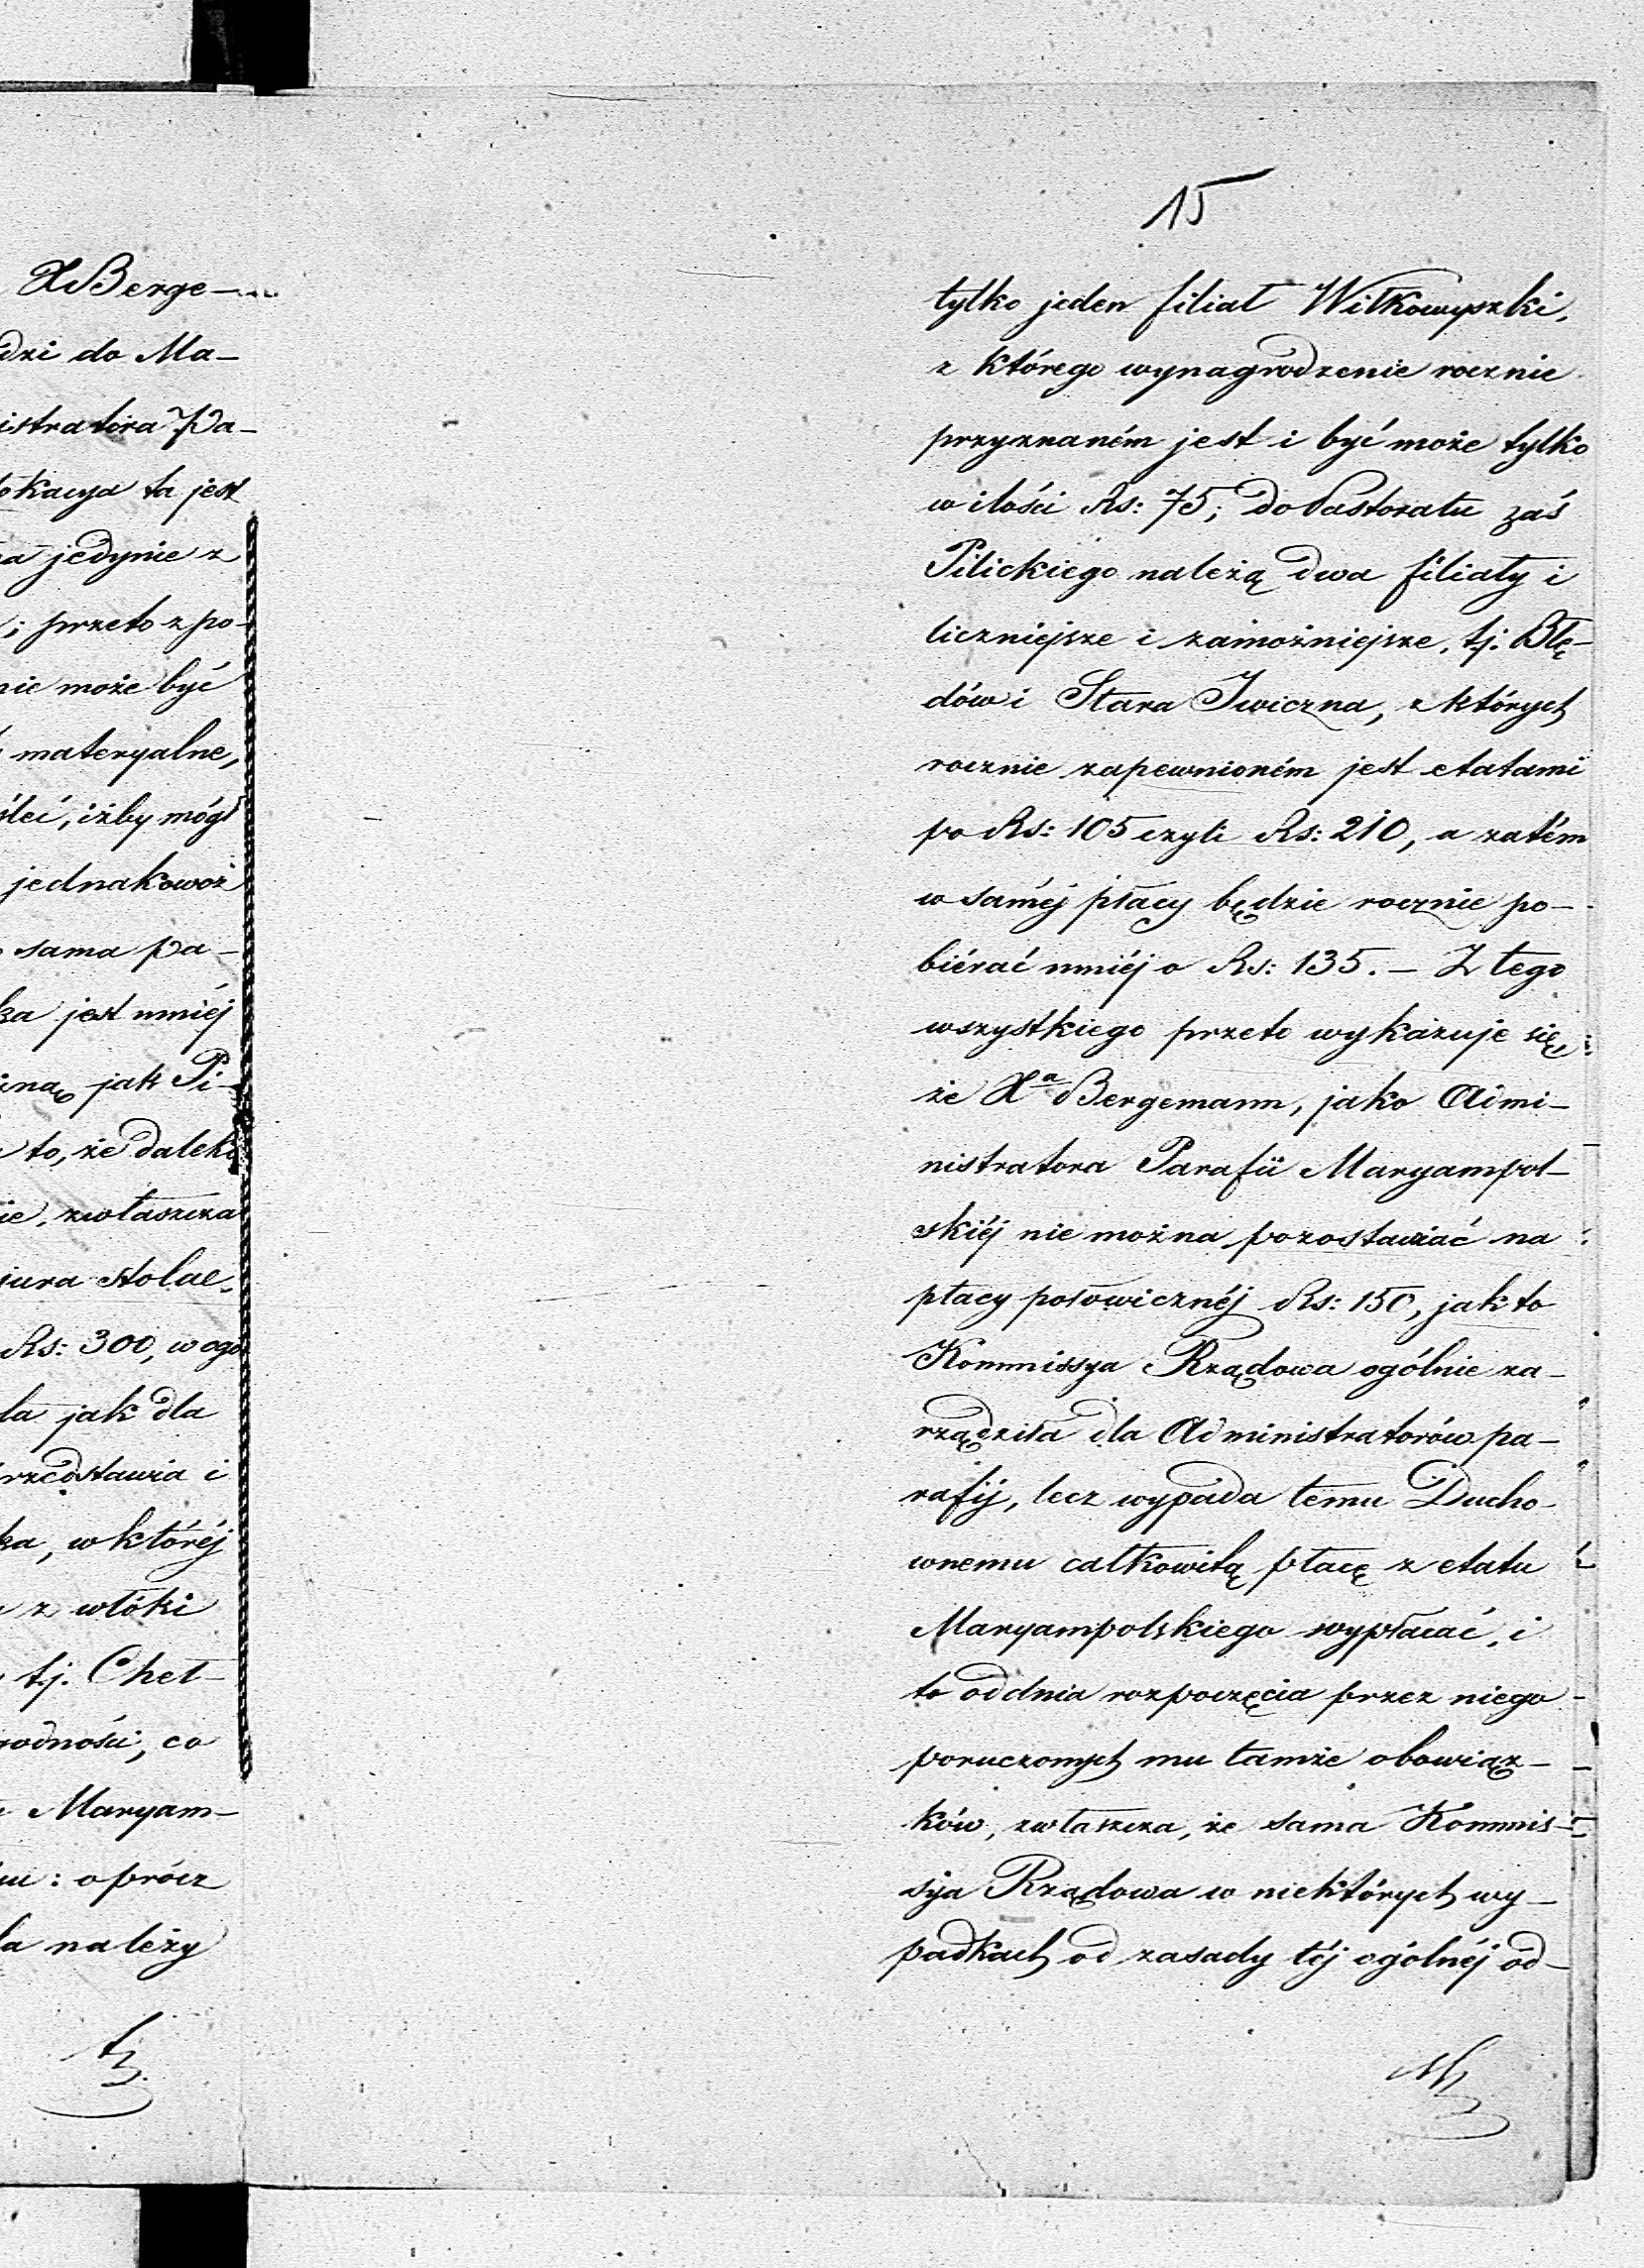 XBerge-
dzi do Ma-
istratora Pa-
okacya ta jest
jedynie z
; przeto z po-
nie może być
materyalne,
iżby mógł
jednakowoż
sama pa-
jest mniéj
jak Pi-
to, że daleko
zwłaszcza
jura stolae
Rs: 300, w ogó
la jak dla
rzedstawia i
ka, w któréj
z włóki
tj. Cheł-
godności, co
Maryam-
: oprócz
la należy
15
tylko jeden filiał Wiłkowyszki,
z którego wynagrodzenie rocznie
przyznaném jest i być może tylko
w ilości Rs: 75; do Pastoratu zaś
Pilickiego należą dwa filiały i
liczniejsze i zamożniejsze, tj: Błę-
dów i Stara Iwiczna, z których
rocznie zapewnioném jest etatami
po Rs: 105 czyli Rs: 210, a zatém
w saméj płacy będzie rocznie po-
biérać mniéj o Rs: 135. – Z tego
wszystkiego przeto wykazuje się,
że Xa Bergemann, jako Admi-
nistratora Parafii Maryampol-
skiéj nie można pozostawiać na
płacy połowicznéj Rs: 150, jak to
Kommissya Rządowa ogólnie za-
rządziła dla Administratorów pa-
rafij, lecz wypada temu Ducho-
wnemu całkowitą płacę z etatu
Maryampolskiego wypłacać, i
to od dnia rozpoczęcia przez niego
poruczonych mu tamże obowiąz-
ków, zwłaszcza, że sama Kommis-
sya Rządowa w niektórych wy-
padkach od zasady téj ogólnéj od-